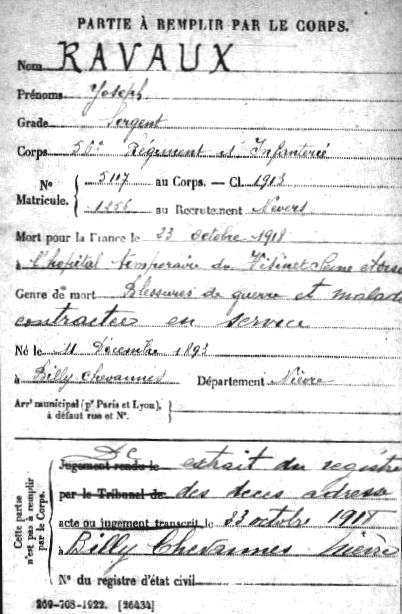 PARTIE À REMPLIR PAR LE CORPS.
Nom RAVAUX
Prénoms Joseph
Grade Sergent
Corps 56e Régiment d'Infanterie
No Matricule. { 5107 au Corps. — Cl. 1913
1256 au Recrutement Nevers
Mort pour la France le 23 octobre 1918
à l'hopital temporaire du Vésinet Seine et oise
Genre de mort Blessures de guerre et malad
contractée en service
Né le 11 Décembre 1893
à Billy Chevannes Département Nièvre
Arrt municipal (pr Paris et Lyon), à défaut rue et No. }
Cette partie n'est pas à remplir par le Corps.
De
Jugement rendu le extrait du registre
par le Tribunal de des deces adressé
acte ou jugement transcrit le 23 octobre 1918
à Billy Chevannes Nièvre
No du registre d'état civil
269-708-1922. [26434]